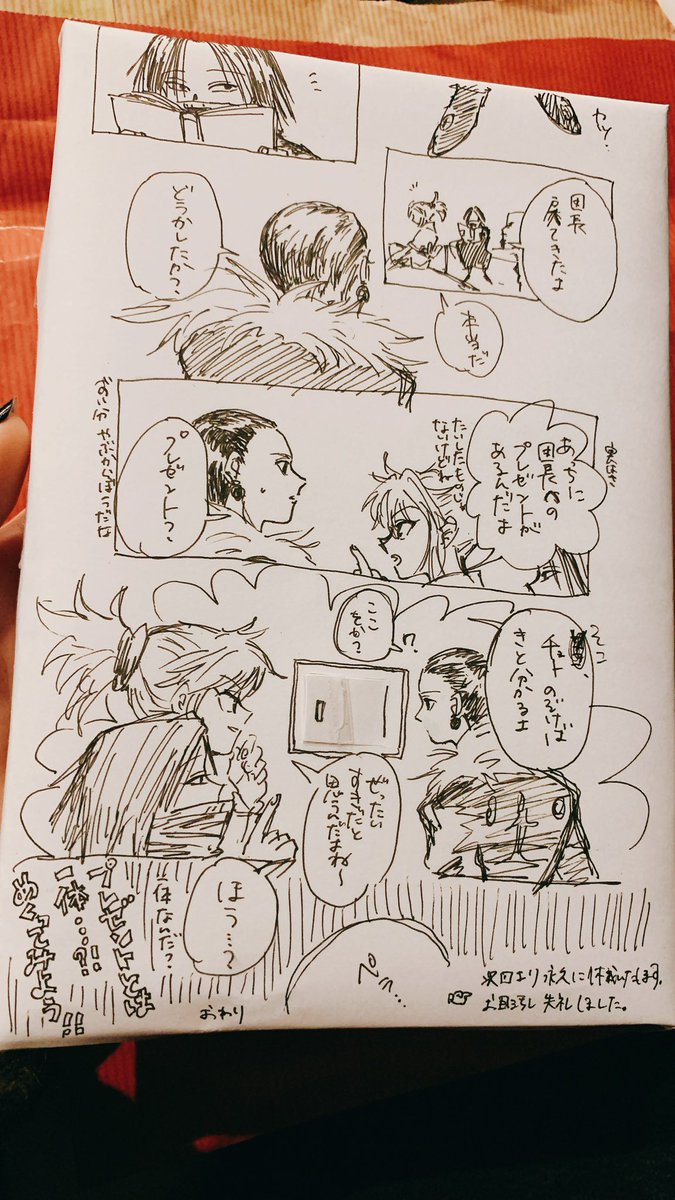 団長
戻てきたよ
本当だ
どうかしたか?
実はさ
あっちに
団長への
プレゼントが
あるんだよ
たいしたものじゃ
ないけどね
プレゼント?
ずい分 やぶからぼうだな
そこ
チョト のぞけば
きと分かるよ
ここ
をか?
ぜったい
すきだと
思うんだよね〜
ほう…?
一体なんだ?
プレゼントとは
一体…?!
めくってみよう!!
ペラ…
おわり
次回より 永久に休載いたします。
お目汚し 失礼しました。